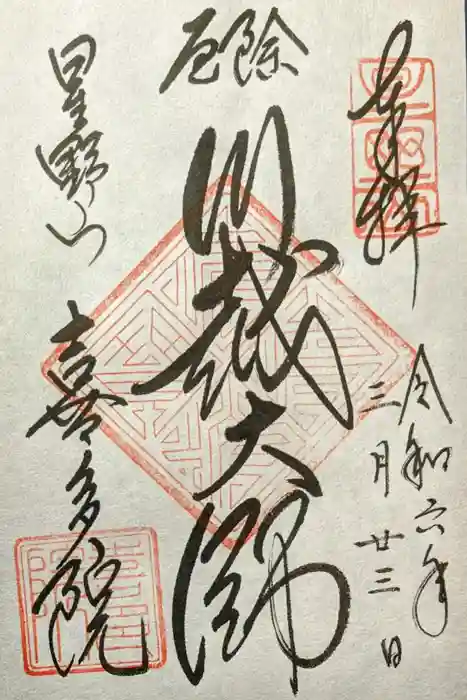 奉拝
令和六年
三月廿三日
厄除
川越大師
星野山
喜多院